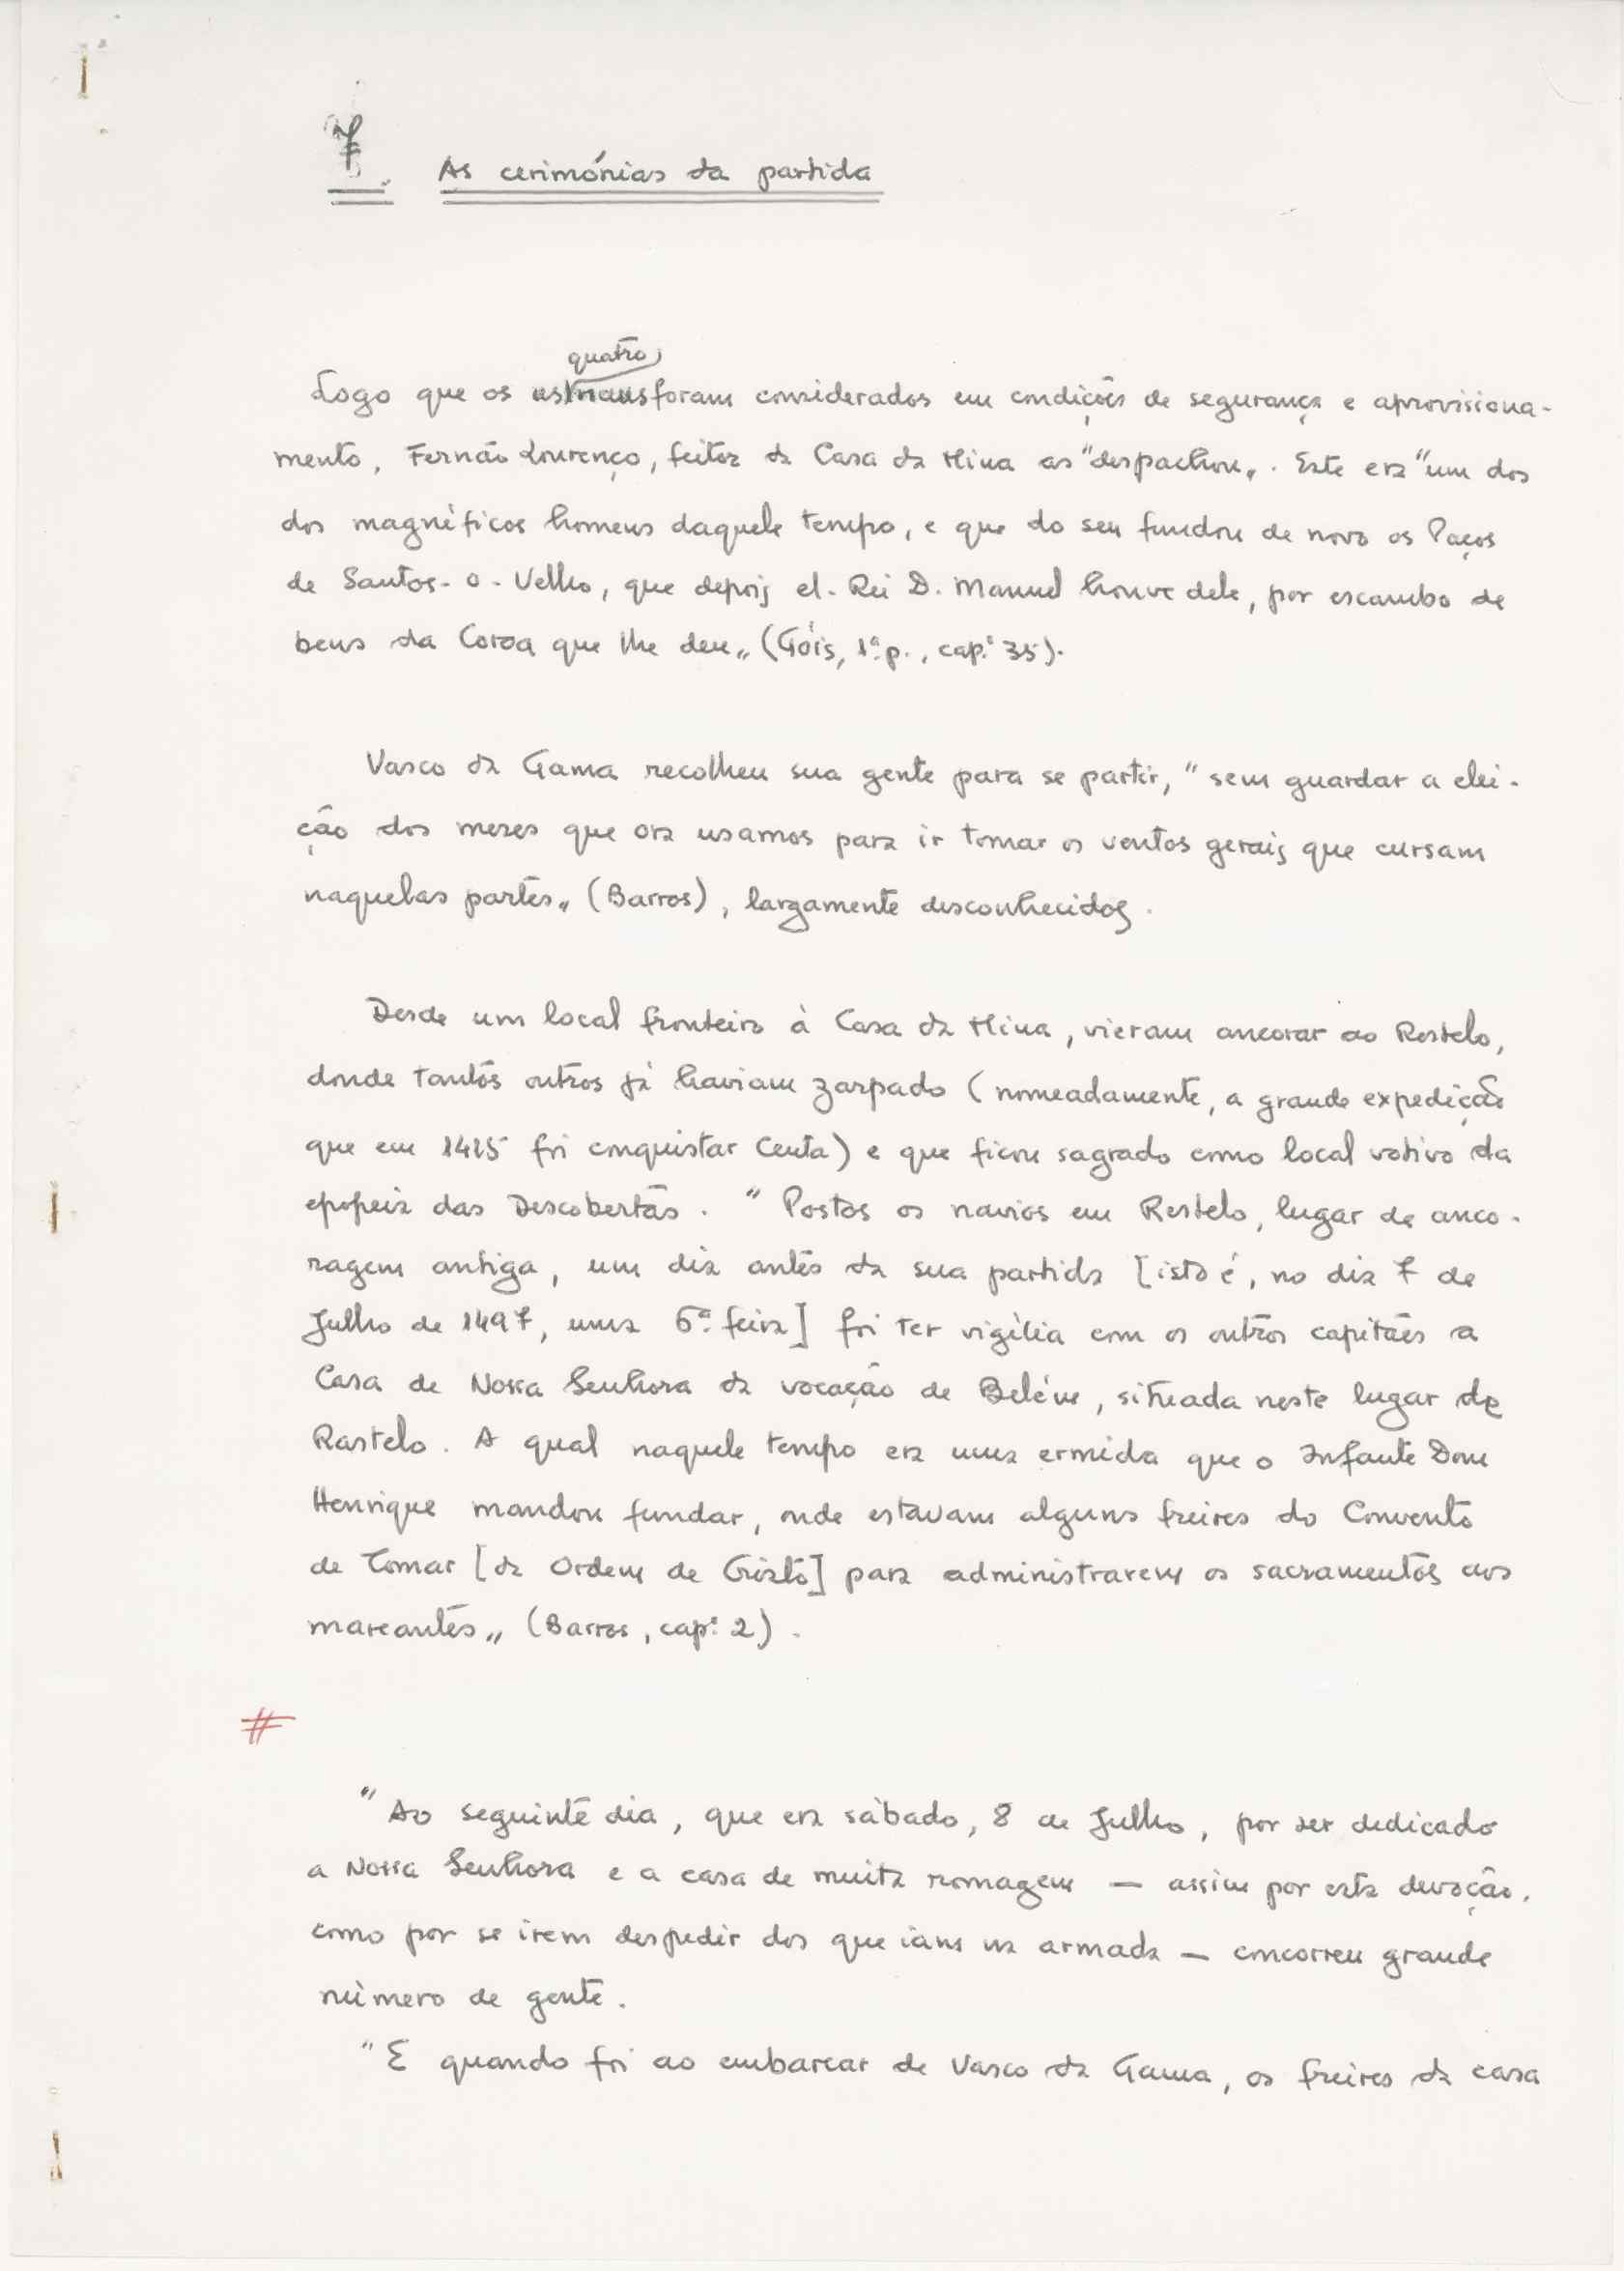 7. As cerimónias da partida
quatro
Logo que os as naus foram considerados em condições de segurança e aprovisiona-
mento, Fernão Lourenço, feitor da Casa da Mina as "despachou". Este era "um dos
dos magníficos homens daquele tempo, e que do seu fundou de novo os Paços
de Santos-o-Velho, que depois el-Rei D. Manuel houve dele, por escambo de
bens da Coroa que lhe deu" (Góis, 1ª p., cap.º 35).
Vasco da Gama recolheu sua gente para se partir, "sem guardar a elei-
ção dos meses que ora usamos para ir tomar os ventos gerais que cursam
naquelas partes" (Barros), largamente desconhecidos.
Desde um local fronteiro à Casa da Mina, vieram ancorar ao Restelo,
donde tantos outros já haviam zarpado (nomeadamente, a grande expedição
que em 1415 foi conquistar Ceuta) e que ficou sagrado como local votivo da
epopeia das Descobertas. "Postos os navios em Restelo, lugar de anco-
ragem antiga, um dia antes da sua partida [isto é, no dia 7 de
Julho de 1497, uma 6ª feira] foi ter vigília com os outros capitães a
Casa de Nossa Senhora da vocação de Belém, situada neste lugar de
Rastelo. A qual naquele tempo era uma ermida que o Infante Dom
Henrique mandou fundar, onde estavam alguns freires do Convento
de Tomar [da Ordem de Cristo] para administrarem os sacramentos aos
mareantes" (Barros, cap.º 2).
#
"Ao seguinte dia, que era sábado, 8 de Julho, por ser dedicado
a Nossa Senhora e a casa de muita romagem — assim por esta devoção,
como por se irem despedir dos que iam na armada — concorreu grande
número de gente.
"E quando foi ao embarcar de Vasco da Gama, os freires da casa